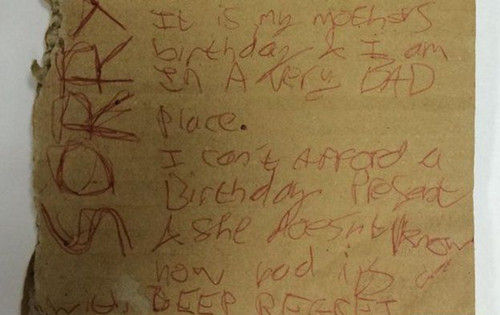 SORRY
It is my mothers
birthday & I am
in A very BAD
place.
I can't AFFord a
Birthday Present
& she doesnt know
how bad it is
with DEEP REGRET